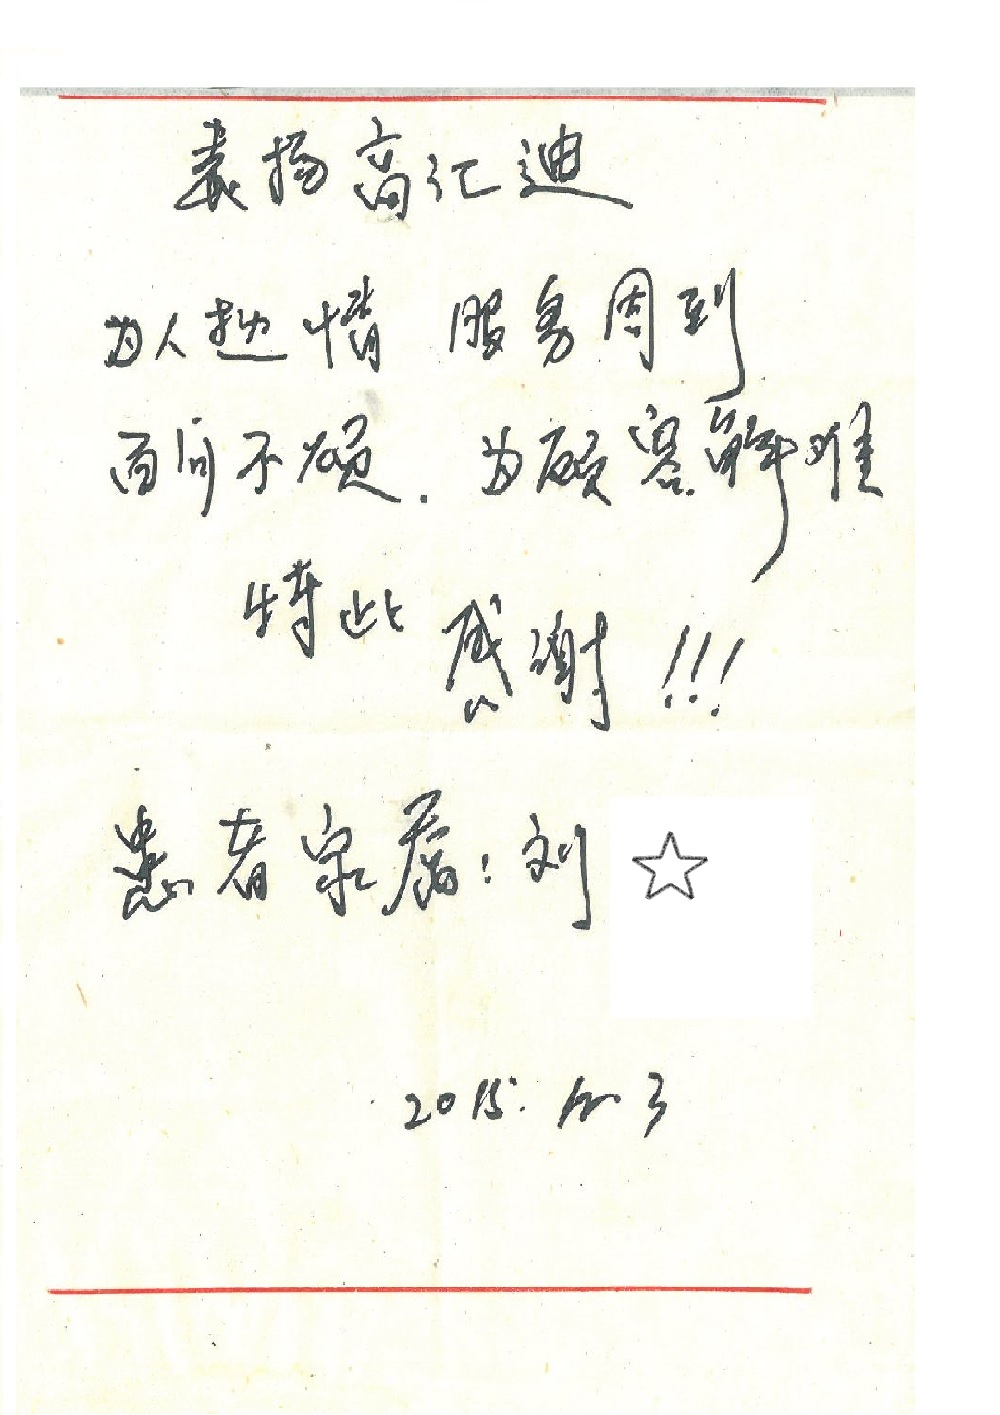 表扬高汇迪
为人热情 服务周到
百问不烦.为顾客解难
特此感谢!!!
患者家属:刘
2015.